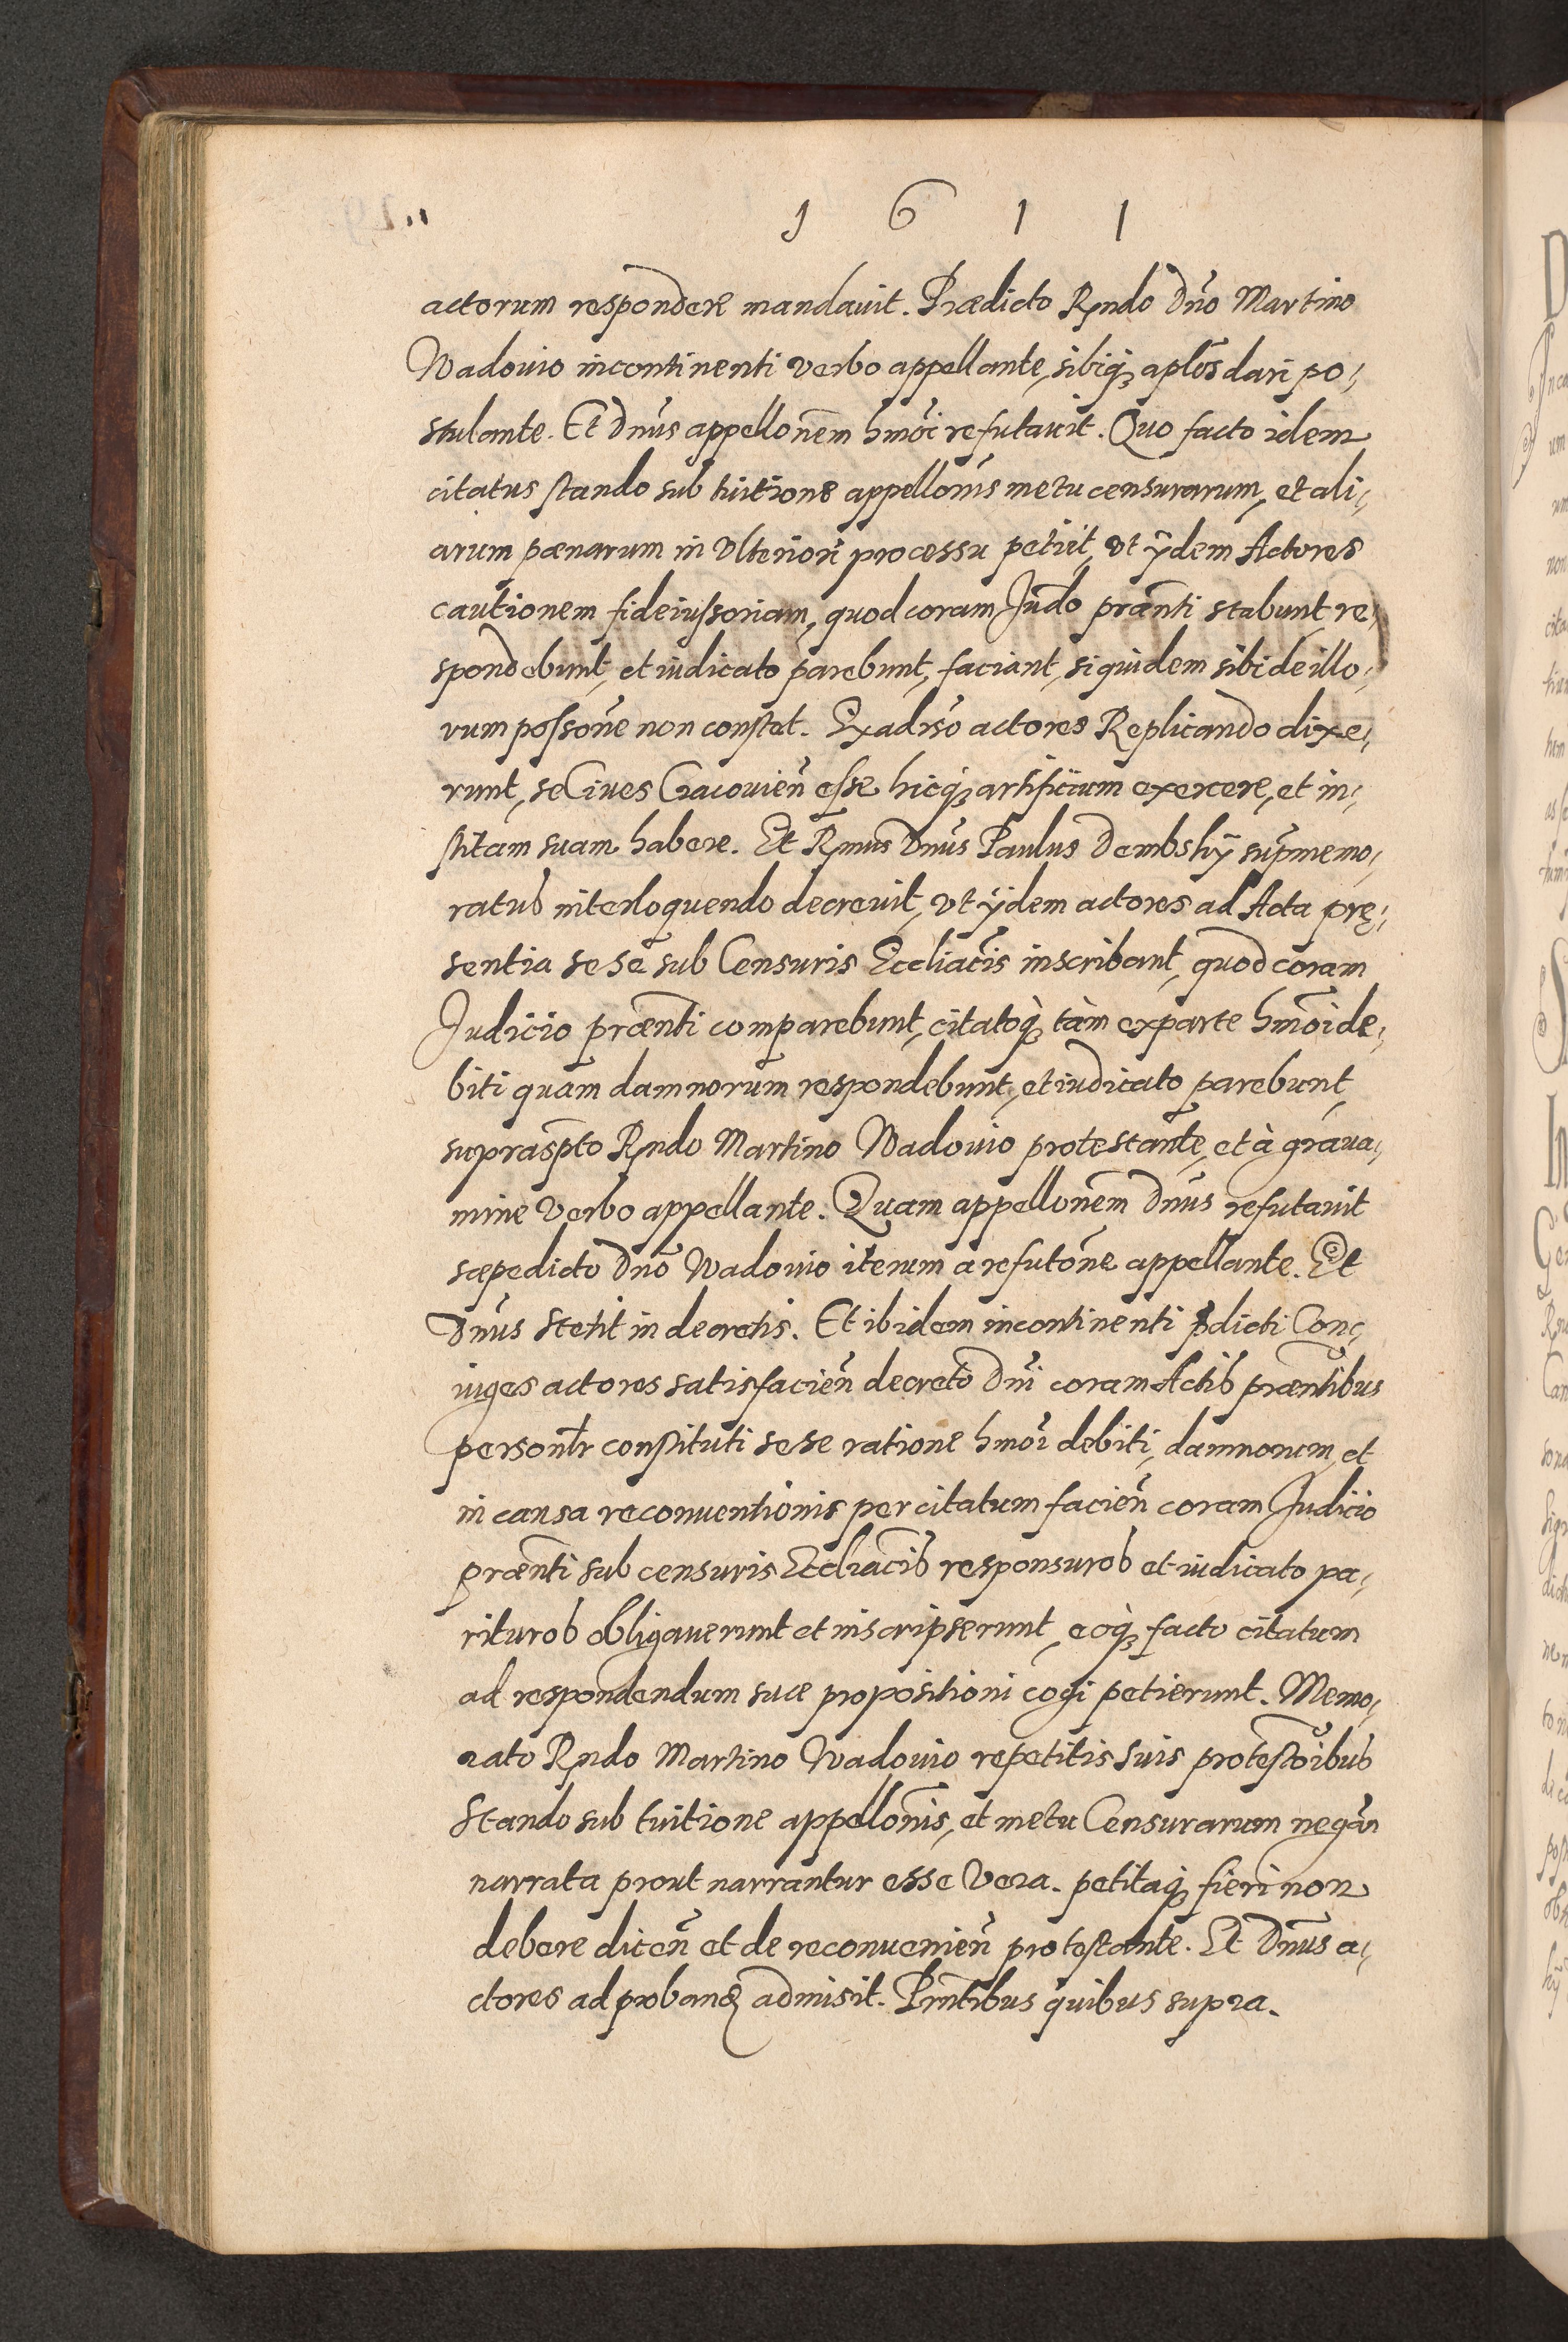 1 6 1 1
actorum respondere mandauit. Prædicto Rndo Dño Martino
Wadouio incontinenti verbo appellante, sibiq́ꝫ aplõs dari po-
stulante. Et Dnũs appellonẽm hmõi refutauit. Quo facto idem
citatus stando sub tuitione appellonis metu censurarum, et ali-
arum pænarum in vlteriori processu petiit, vt ÿdem Actores
cautionem fideiussoriam, quod coram Judõ præñti stabunt re-
spondebunt, et iudicato parebunt, faciant, siquidem sibi de illo-
rum possoñe non constet. Ex aduso actores Replicando dixe-
runt, se Ciues Cracouieñ esse hicq́ꝫ artificium exercere, et in-
stitam suam habere. Et Rmus Dnũs Paulus Dembskÿ supmemo-
ratus interloquendo decreuit, vt ÿdem actores ad Acta prę-
sentia sese sub Censuris Eccliacis inscribant, quod coram
Judicio præñti comparebunt, citatoq́ꝫ tàm ex parte hmõi de-
biti quam damnorum respondebunt, et iudicato parebunt,
suprasp̃to Rndo Martino Wadouio protestante, et à graua-
mine verbo appellante. Quam appellonẽm Dnũs refutauit
sæpedicto Dnõ Wadouio iterum a refutoñe appellante. Et
Dnũs stetit in decretis. Et ibidem incontinenti p̱dicti Con-
iuges actores satisfacieñ decreto Dñi coram Actis præñtibus
personlr constituti sese ratione hmõi debiti, damnorum, et
in causa reconuentionis per citatum facieñ coram Judicio
præñti sub censuris Eccliacis responsuros et iudicato pa-
rituros obligauerunt et inscripserunt, eoq́ꝫ facto citatum
ad respondendum suæ propositioni cogi petierunt. Memo-
rato Rndo Martino Wadouio repetitis suis protestõibus
Stando sub tuitione appellonis, et metu Censurarum negañ
narrata prout narrantur esse vera. petitaq́ꝫ fieri non
debere diceñ et de reconuenieñ protestante. Et Dnũs a-
ctores ad proband admisit. Prñtibus quibus supra.